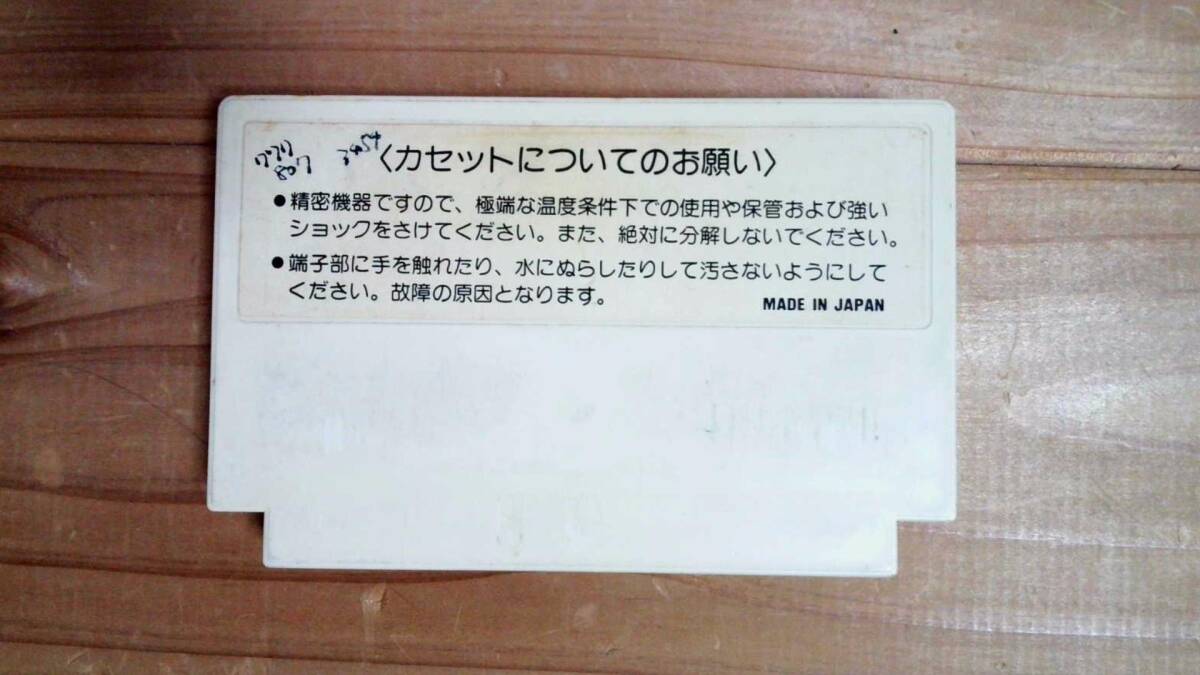 〈カセットについてのお願い〉
●精密機器ですので、極端な温度条件下での使用や保管および強い
ショックをさけてください。また、絶対に分解しないでください。
●端子部に手を触れたり、水にぬらしたりして汚さないようにして
ください。故障の原因となります。
MADE IN JAPAN